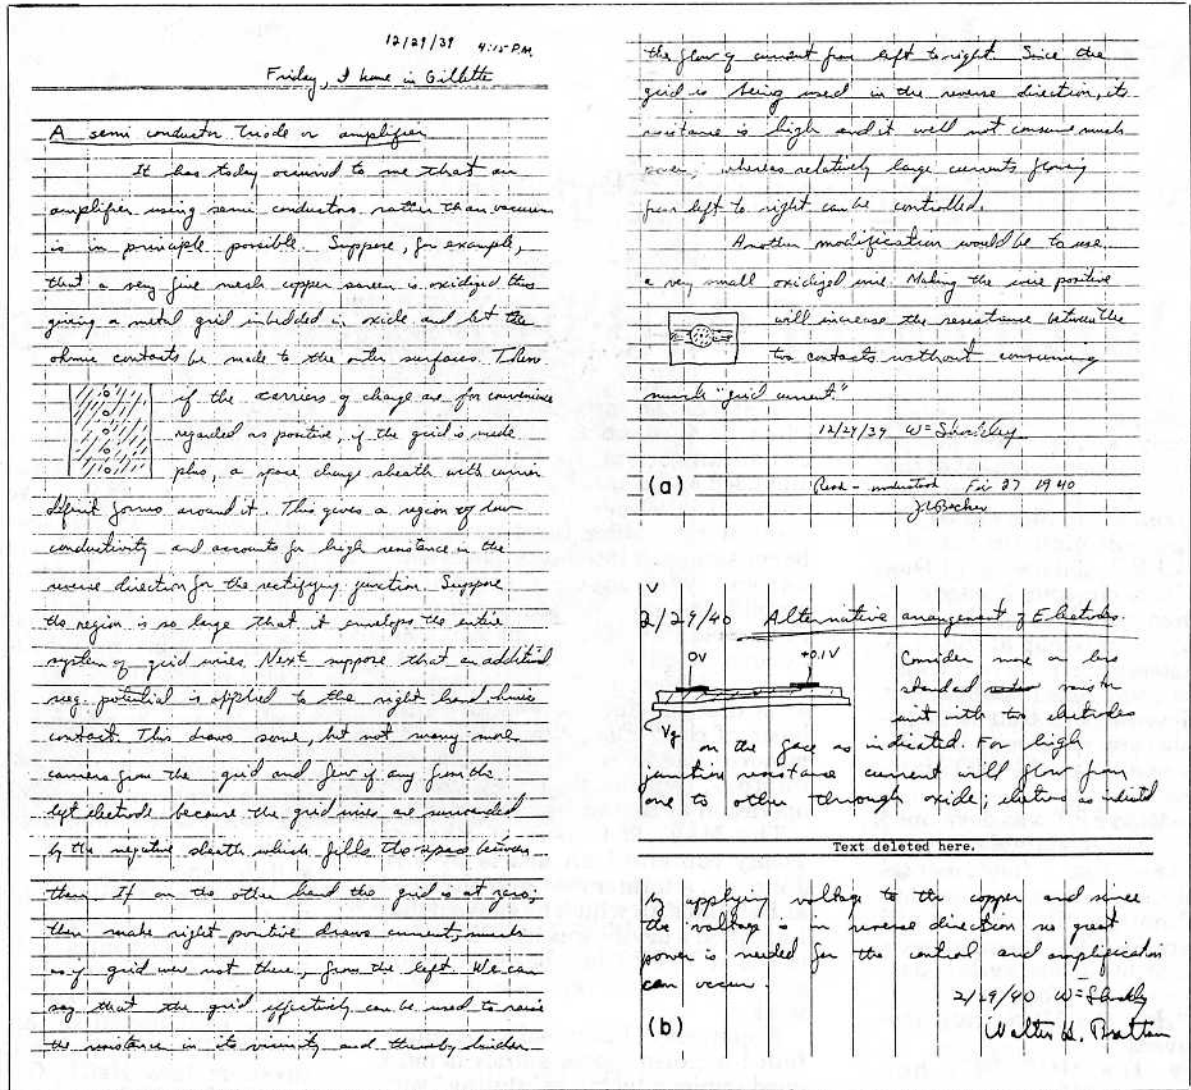 12/29/39 4:15 P.M.
Friday, I home in Gillette
A semi conductor triode or amplifier
It has today occurred to me that an
amplifier using semi conductors rather than vacuum
is in principle possible. Suppose, for example,
that a very fine mesh copper screen is oxidized thus
giving a metal grid imbedded in oxide and let the
ohmic contacts be made to the outer surfaces. Then
if the carriers of charge are for convenience
regarded as positive, if the grid is made
plus, a space charge sheath with carrier
deficit forms around it. This gives a region of low
conductivity and accounts for high resistance in the
reverse direction for the rectifying junction. Suppose
the region is so large that it envelops the entire
system of grid wires. Next suppose that an additional
neg. potential is applied to the right hand
contact. This draws some, but not many more
carriers from the grid and few if any from the
left electrode because the grid wires are surrounded
by the negative sheath which fills the space between
them. If on the other hand the grid is at zero,
then make right positive draws current, much
as if grid were not there, from the left. We can
say that the grid effectively can be used to raise
the resistance in its vicinity and thereby
the flow of current from left to right. Since the
grid is being used in the reverse direction, its
resistance is high and it will not consume much
power, whereas relatively large currents flowing
from left to right can be controlled.
Another modification would be to use
a very small oxidized wire. Making the wire positive
will increase the resistance between the
two contacts without consuming
much "grid current."
12/29/39 W=Shockley
(a)
Read - understood Feb 27 1940
J A Becker
2/29/40 Alternative arrangement of Electrodes
0V +0.1V
Vg
Consider more or less
standard
unit with two electrodes
on the face as indicated. For high
junction resistance current will flow from
one to other through oxide; electrons as indicated
Text deleted here.
by applying voltage to the copper and since
the voltage is in reverse direction no great
power is needed for the control and amplification
can occur.
2/29/40 W=Shockley
(b)
Walter H. Brattain